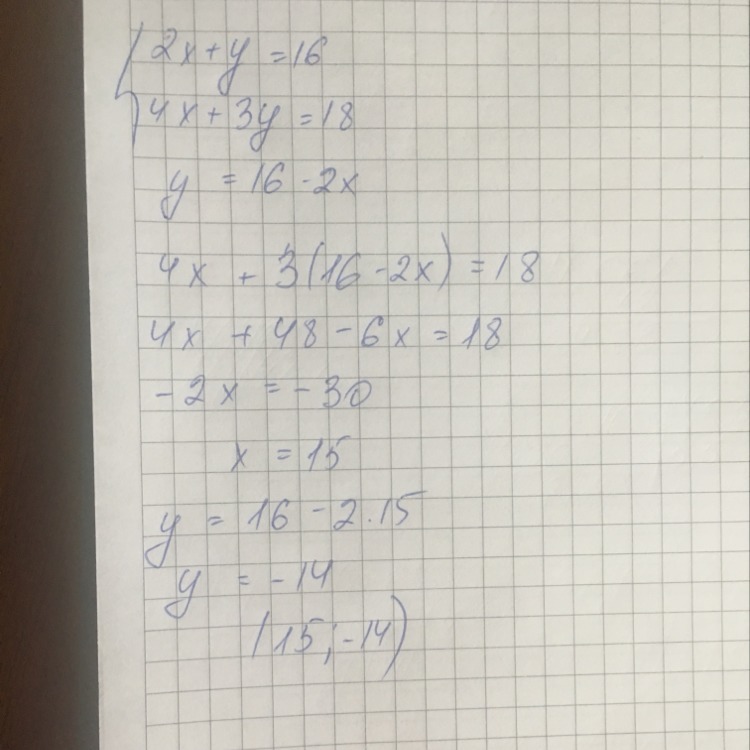 2x+y=16
4x+3y=18
y=16-2x
4x+3(16-2x)=18
4x+48-6x=18
-2x=-30
x=15
y=16-2.15
y=-14
(15;-14)